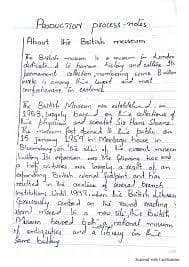 PRODUCTION PROCESS-NOTES
About the British museum
The British museum is a museum in London
dedicated to human history and culture. Its
permanent collection, numbering some 8 million
works is among the largest and most
comprehensive in existence
The British Museum was established in
1753, largely based on the collections of
the physician and scientist Sir Hans Sloane. The
museum first opened to the public on
15 January 1759 in Montagu house in
Bloomsbury, on the site of the current museum
building. Its expansion over the following two and
a half centuries was largely a result of an
expanding British colonial footprint and has
resulted in the creation of several branch
institutions. Until 1997, when the British Library
(previously centred on the round reading
room moved to a new site, the British
Museum housed both a national museum
of antiquities and a library in the
same building
Scanned with CamScanner